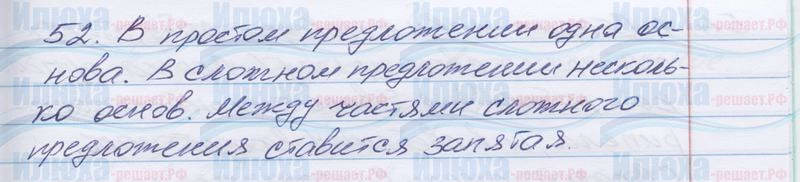 52. В простом предложении одна ос-
нова. В сложном предложении несколь-
ко основ. Между частями сложного
предложения ставится запятая.